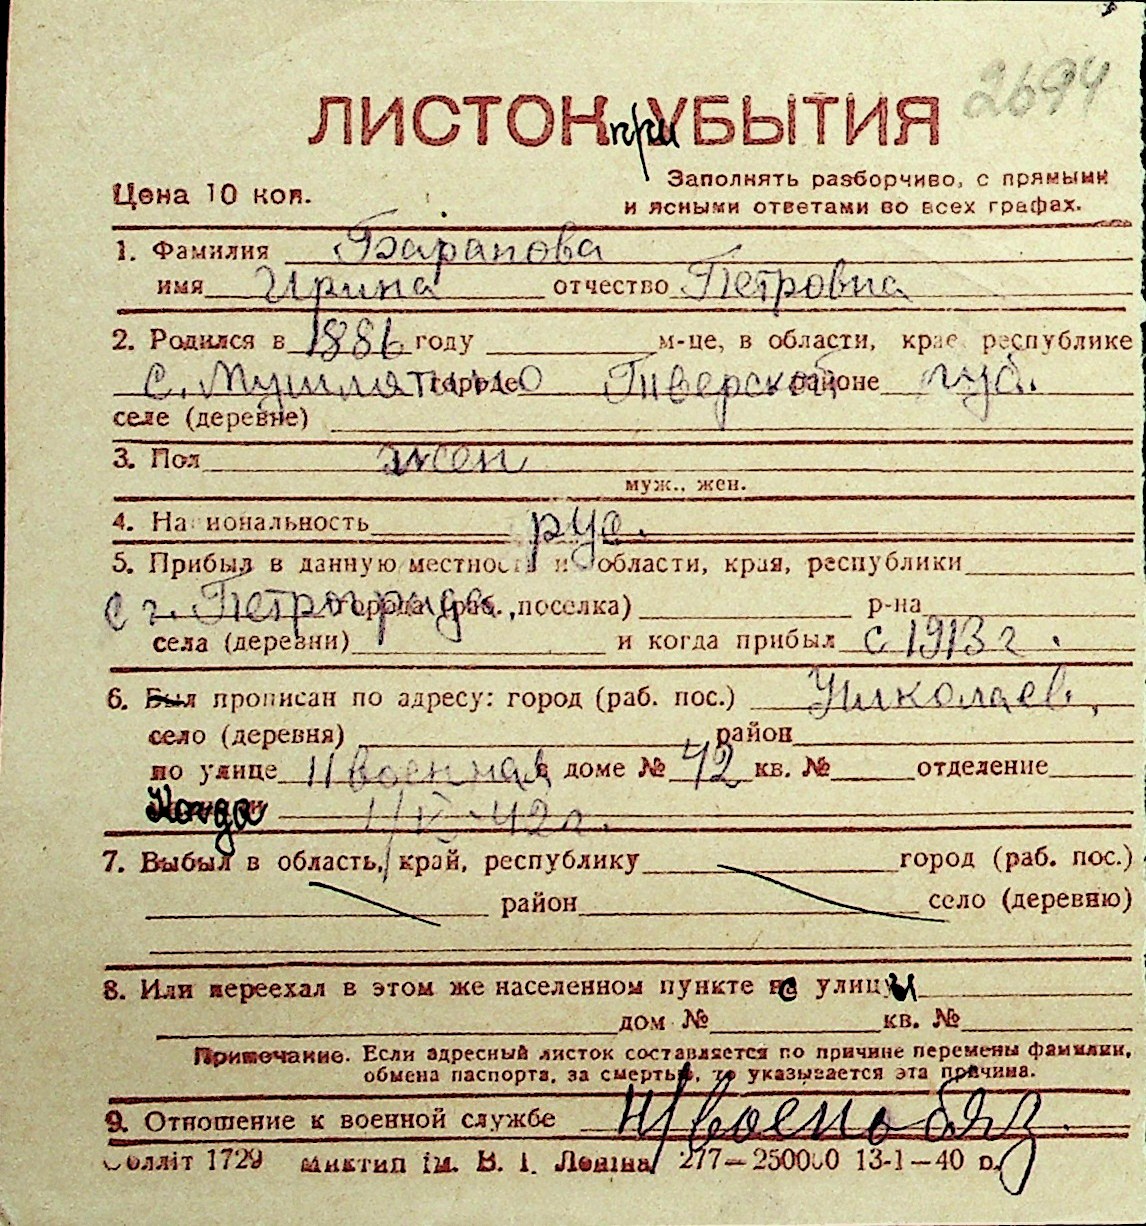 2694
ЛИСТОК при УБЫТИЯ
Цена 10 коп.
Заполнять разборчиво, с прямыми
и ясными ответами во всех графах.
1. Фамилия Баранова
имя Ирина отчество Петровна
2. Родился в 1886 году м-це, в области, крае, республике
с. городе Тверской районе губ.
селе (деревне)
3. Пол жен
муж., жен.
4. Национальность рус.
5. Прибыл в данную местность из области, края, республики
с г. Петрограда города (раб. поселка) р-на
села (деревни) и когда прибыл с 1913 г.
6. Был прописан по адресу: город (раб. пос.) Николаев,
село (деревня) район
по улице II военная в доме № 42 кв. № отделение
Когда 1/IV-42 г.
7. Выбыл в область, край, республику город (раб. пос.)
район село (деревню)
8. Или переехал в этом же населенном пункте с улицы
дом № кв. №
Примечание. Если адресный листок составляется по причине перемены фамилии,
обмена паспорта, за смертью, то указывается эта причина.
9. Отношение к военной службе н/военнобяз.
Облліт 1729 Миктип ім. В. І. Леніна 277—250000 13-1—40 р.